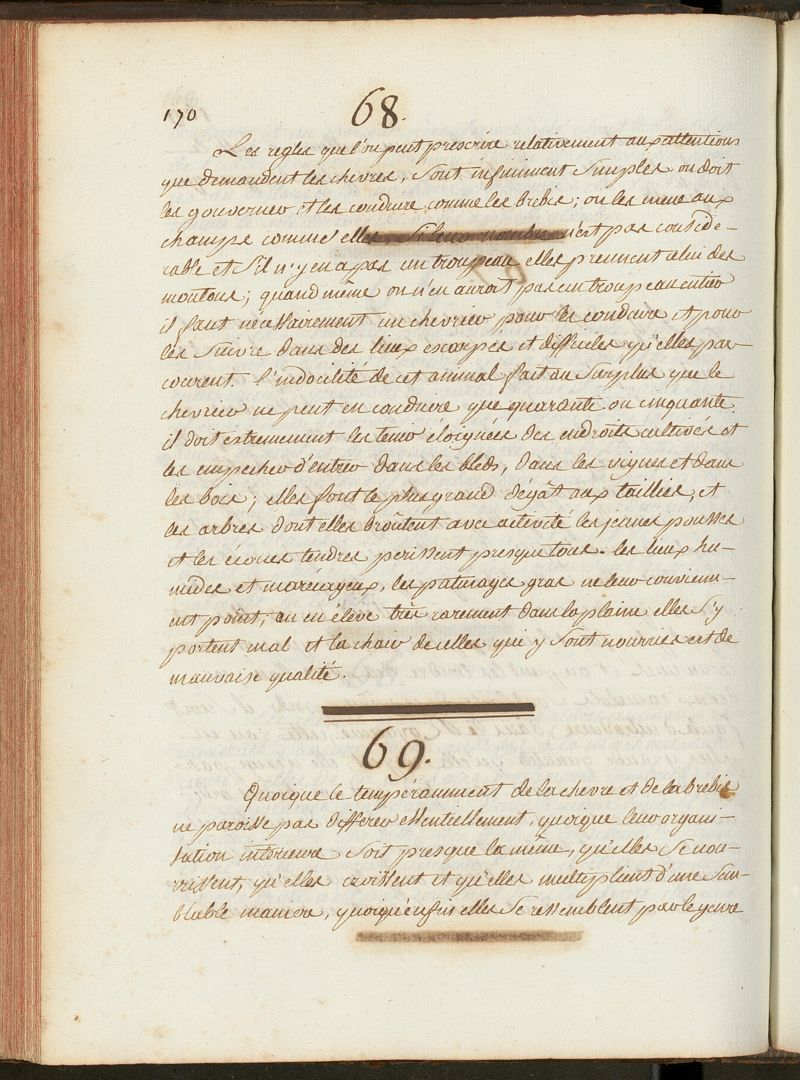 170
68.
Les regles que l'on peut prescrire relativement aux attentions
que demandent les chevres, sont infiniment simples, on doit
les gouverner et les conduire comme les brebis; on les mene aux
champs comme elles, si leur nombre n'est pas conside-
rable et s'il n'y en a pas un troupeau elles prennent celui des
moutons; quand même on n'en auroit pas un troupeau entier
il faut nécessairement un chevrier pour les conduire et pour
les suivre dans des lieux escarpés et difficiles qu'elles par-
courent. l'indocilité de cet animal fait au surplus que le
chevrier ne peut en conduire que quarante ou cinquante.
il doit extremement les tenir éloignées des endroits cultivés et
les empecher d'entrer dans les bleds, dans les vignes et dans
les bois; elles font le plus grand dégât aux taillis, et
les arbres dont elles broûtent avec activité les jeunes pousses
et les écorces tendres perissent presque tous. les lieux hu-
mides et marécageux, les paturages gras ne leur convienn-
ent point, on en élève très rarement dans la plaine elles s'y
portent mal et la chair de celles qui y sont nourries est de
mauvaise qualité.
69.
Quoique le tempéramment de la chevre et de la brebis
ne paroisse pas differer essentiellement, quoique leur organi-
sation interieure soit presque la même, qu'elles se nou-
rrissent, qu'elles croissent et qu'elles multiplient d'une sem-
blable maniere, quoiqu'enfin elles se ressemblent par le genre